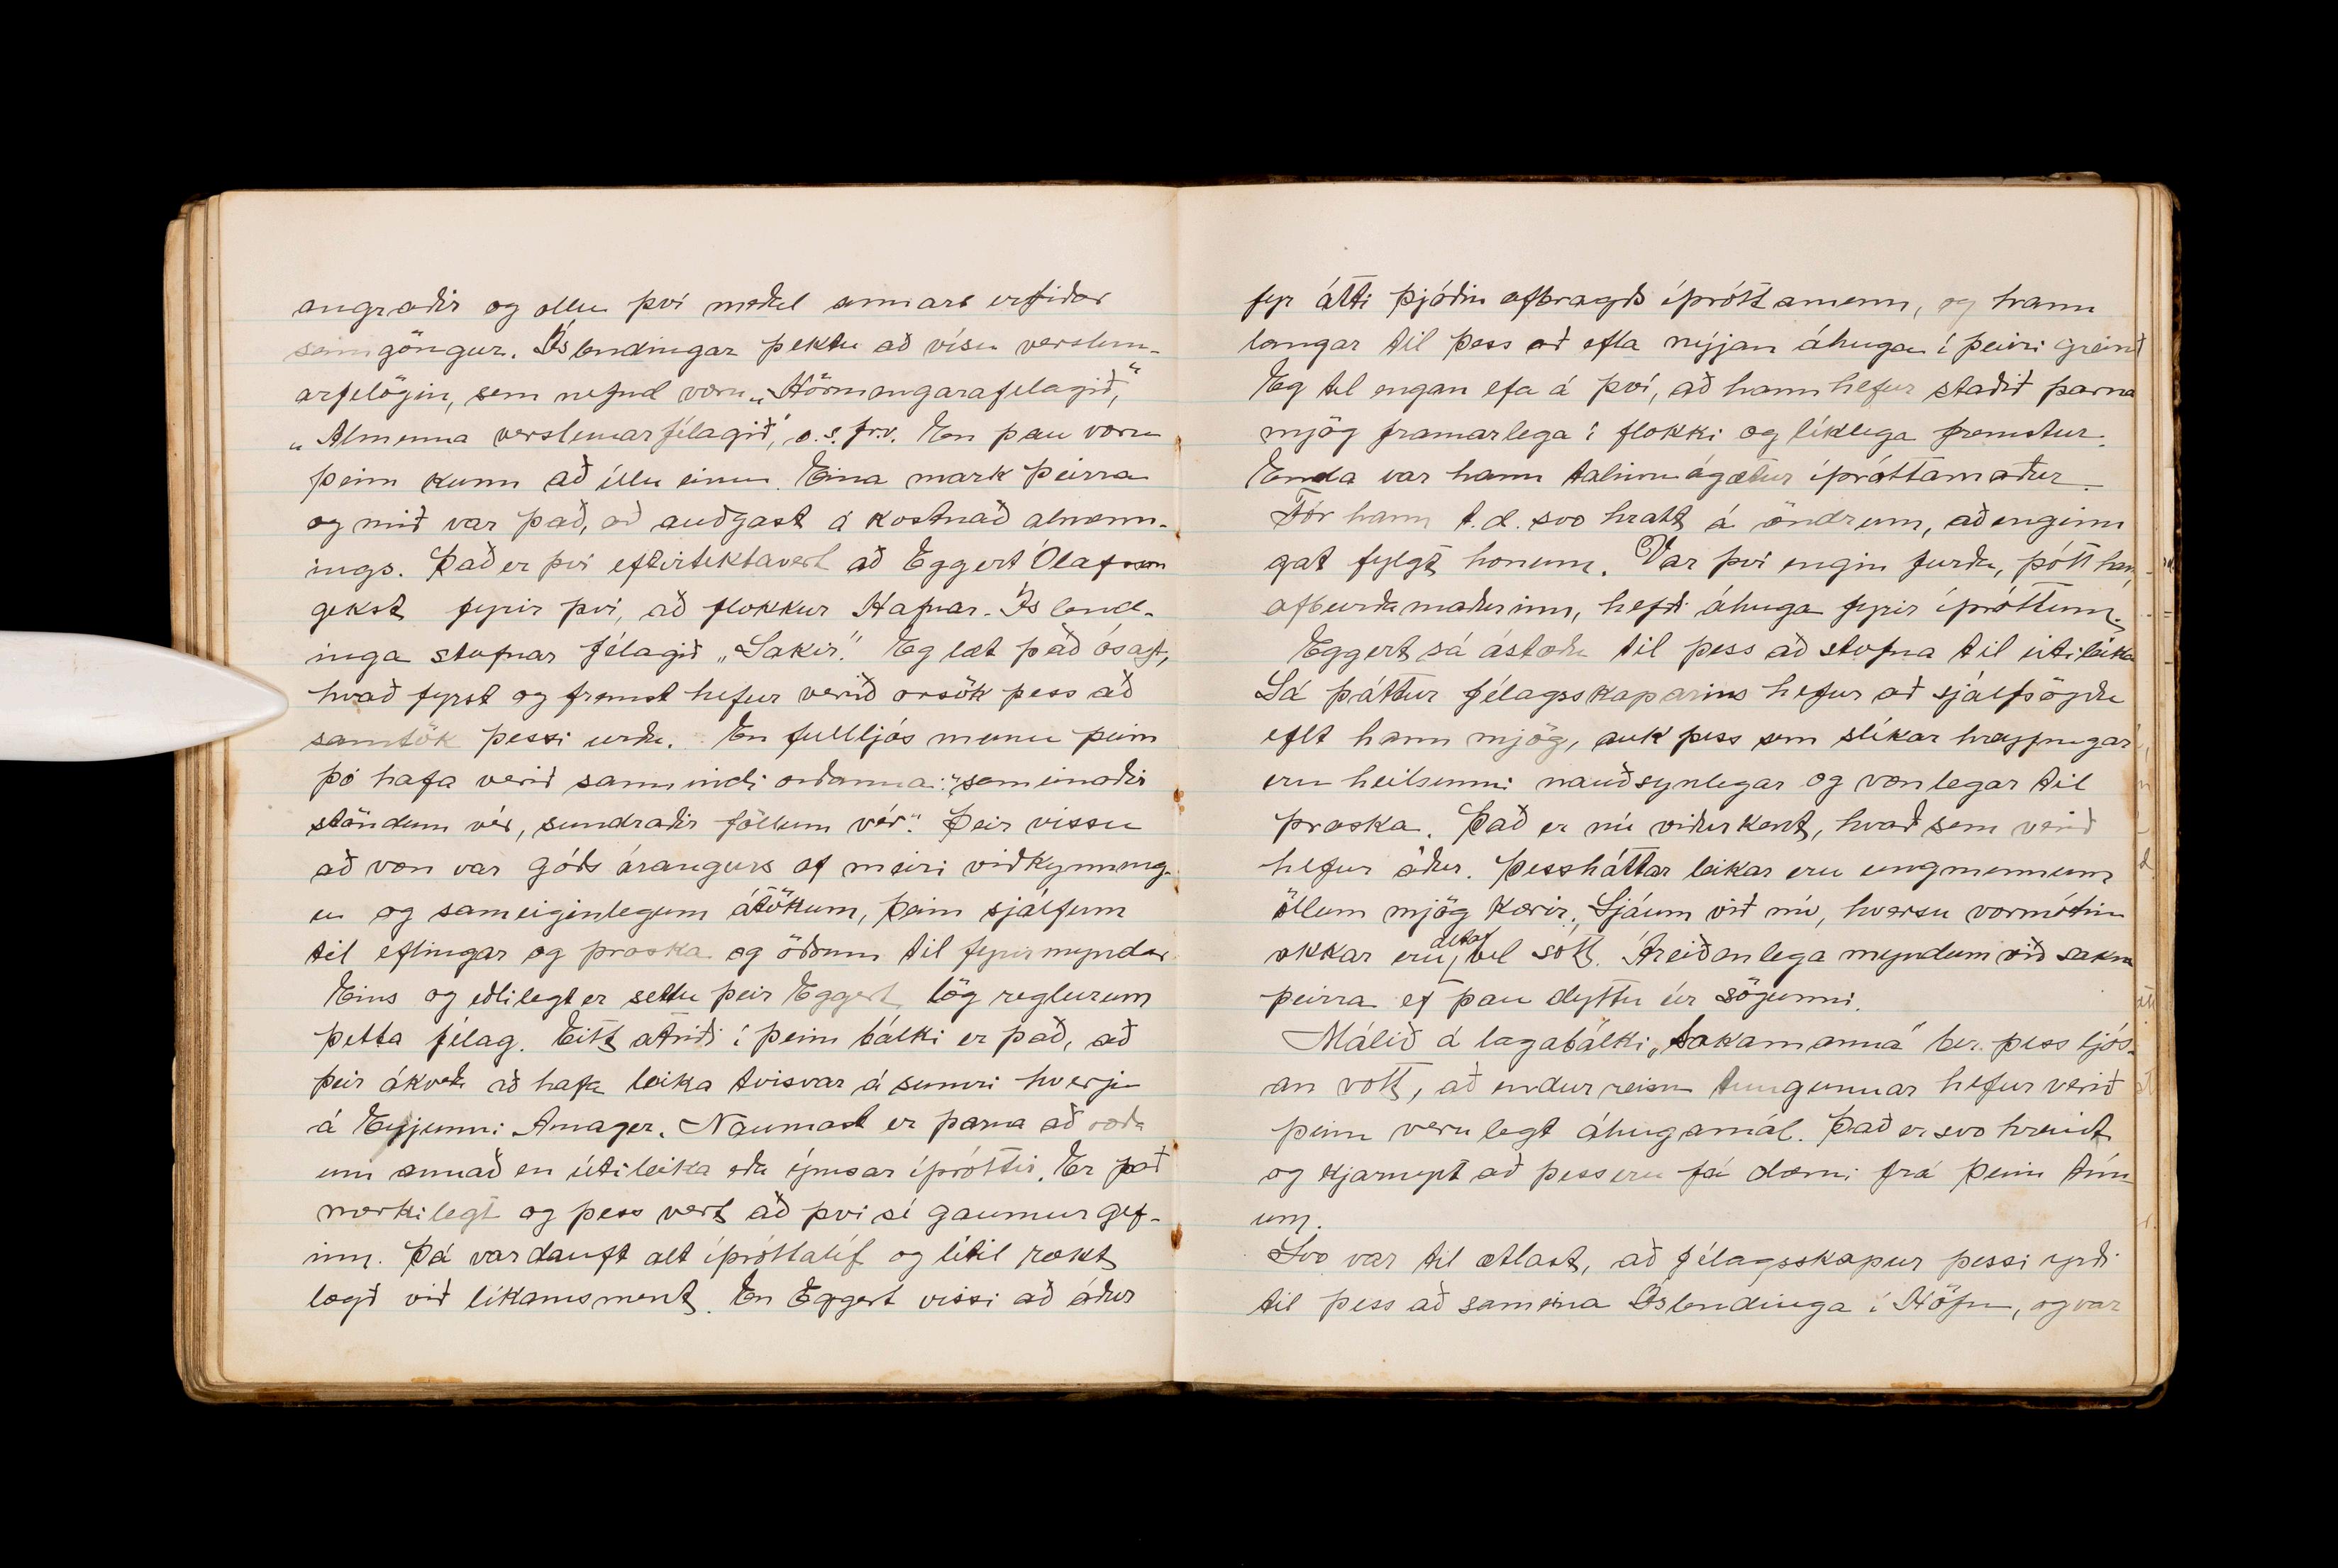 angraðir og ollu því meðal annars erfiðar
samgöngur. Íslendingar þektu að vísu verslun-
arfelögin, sem nefnd voru „Hörmangarafelagið,"
„Almenna verslunarfélagið", o.s.frv. En þau voru
þeim kunn að illu einu. Eina mark þeirra
og mið var það, að auðgast á kostnað almenn-
ings. Það er því eftirtektavert að Eggert Ólafsson
gekst fyrir því, að flokkur Hafnar-Íslend-
inga stofnar félagið „Sakir". Eg læt það ósagt,
hvað fyrst og fremst hefur verið orsök þess að
samtök þessi urðu. En fullljós munu þeim
þó hafa verið sannindi orðanna: "sameinaðir
stöndum vér, sundraðir föllum vér". Þeir vissu
að von var góðs árangurs af meiri viðkynning-
u og sameiginlegum átökum, þeim sjálfum
til eflingar og þroska og öðrum til fyrirmyndar
Eins og eðlilegt er settu þeir Eggert lög reglur um
þetta félag. Eitt atriði í þeim bálki er það, að
þeir ákveða að hafa leika tvisvar á sumri hverju
á Eyjunni Amager. Naumast er þarna að ræða
um annað en útileika eða ýmsar íþróttir. Er það
merkilegt og þess vert að því sé gaumur gef-
inn. Þá var dauft alt íþróttalíf og lítil rækt
lögð við líkamsment. En Eggert vissi að áður
fyr átti þjóðin afbragðs íþróttamenn, og hann
langar til þess að efla nýjan áhuga í þeirri grein
Eg tel engan efa á því, að hann hefur staðið þarna
mjög framarlega í flokki og líklega fremstur.
Enda var hann talinn ágætur íþróttamaður.
Fór hann t.d. svo hratt á öndrum, að enginn
gat fylgt honum. Var því engin furða, þótt hann,
afburðamaðurinn, hefði áhuga fyrir íþróttum.
Eggert sá ástæðu til þess að stofna til útileika
Sá þáttur félagsskaparins hefur að sjálfsögðu
eflt hann mjög, auk þess sem slíkar hreyfingar
eru heilsunni nauðsynlegar og vænlegar til
þroska. Það er nú viðurkent, hvað sem verið
hefur áður. Þessháttar leikar eru ungmennum
öllum mjög kærir. Sjáum við nú, hversu vormótin
okkar eru ætíð vel sótt. Áreiðanlega myndum við sakna
þeirra ef þau dyttu úr sögunni.
Málið á lagabálki „Sakamanna" ber þess ljós-
an vott, að endurreisn tungunnar hefur verið
þeim verulegt áhugamál. Það er svo hreint
og kjarnyrt að þess eru fá dæmi frá þeim tím-
um.
Svo var til ætlast, að félagsskapur þessi yrði
til þess að sameina Íslendinga í Höfn, og var